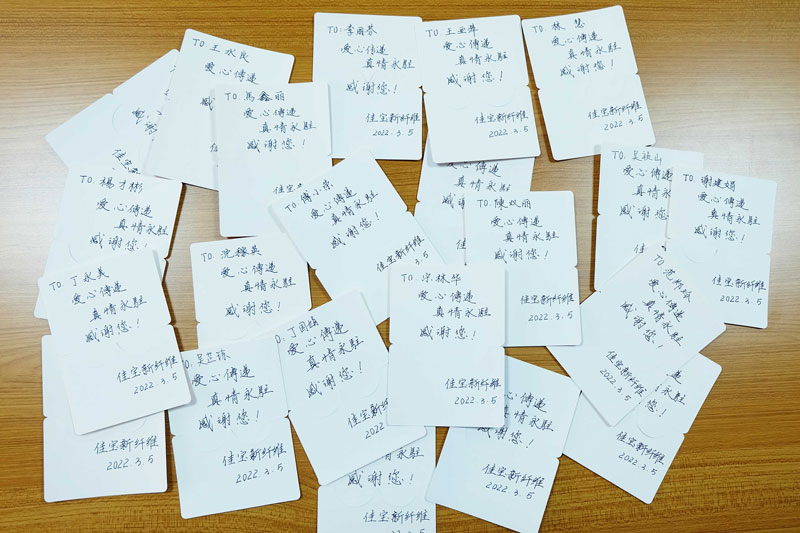 TO. 王水良
爱心傳递
感
TO. 李丽芬
爱心傳递
真情永駐
感谢您!
佳宝新纤维
2022.3.5
TO. 王亚萍
爱心傳递
真情永駐
感谢您!
佳宝新纤维
2022.3.5
TO. 林慧
爱心傳递
真情永駐
感谢您!
佳宝新纤维
2022.3.5
TO. 馬鑫丽
爱心傳递
真情永駐
感谢您!
佳宝
TO. 楊才彬
爱心傳递
真情永駐
感谢您!
TO. 傅小
爱心傳递
真情永駐
感谢您!
佳宝新纤维
TO. 陳双丽
爱心傳递
真情永駐
感谢您!
佳宝新纤维
2022.3.5
TO. 山
爱心傳递
TO. 谢建娟
爱心傳递
真情永駐
感谢您!
佳宝新纤维
2022.3.5
TO. 丁永美
爱心傳递
真情永駐
感谢您!
佳宝新纤维
2022.3.5
TO. 沈稼英
爱心傳递
真情永駐
感谢您!
TO. 宗林华
爱心傳递
真情永駐
感谢您!
佳宝新纤维
2022.3.5
TO. 范
爱心傳递
真情永駐
感谢您!
佳宝新纤维
2022.3.5
O. 吴
爱心傳递
真情永駐
感谢您!
佳宝新纤维
2022.3.5
O. 丁国
爱心傳递
真情永駐
感谢您!
佳宝新纤维
2022.3.5
爱心傳递
真情永駐
感谢您!
佳宝新纤维
2022.3.5
递
真情永駐
感谢您!
佳宝新纤维
2022.3.5
佳宝新纤维
2022.3.5
真情永駐
感谢您!
佳宝新纤维